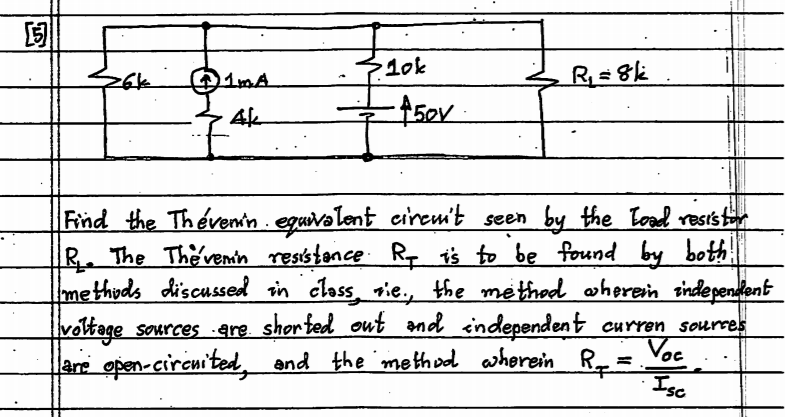 [5]
6k
1mA
10k
R_L = 8k
4k
50V
Find the Thévenin equivalent circuit seen by the load resistor
R_L. The Thévenin resistance R_T is to be found by both
methods discussed in class, i.e., the method wherein independent
voltage sources are shorted out and independent curren sources
are open-circuited, and the method wherein R_T = V_OC / I_SC.